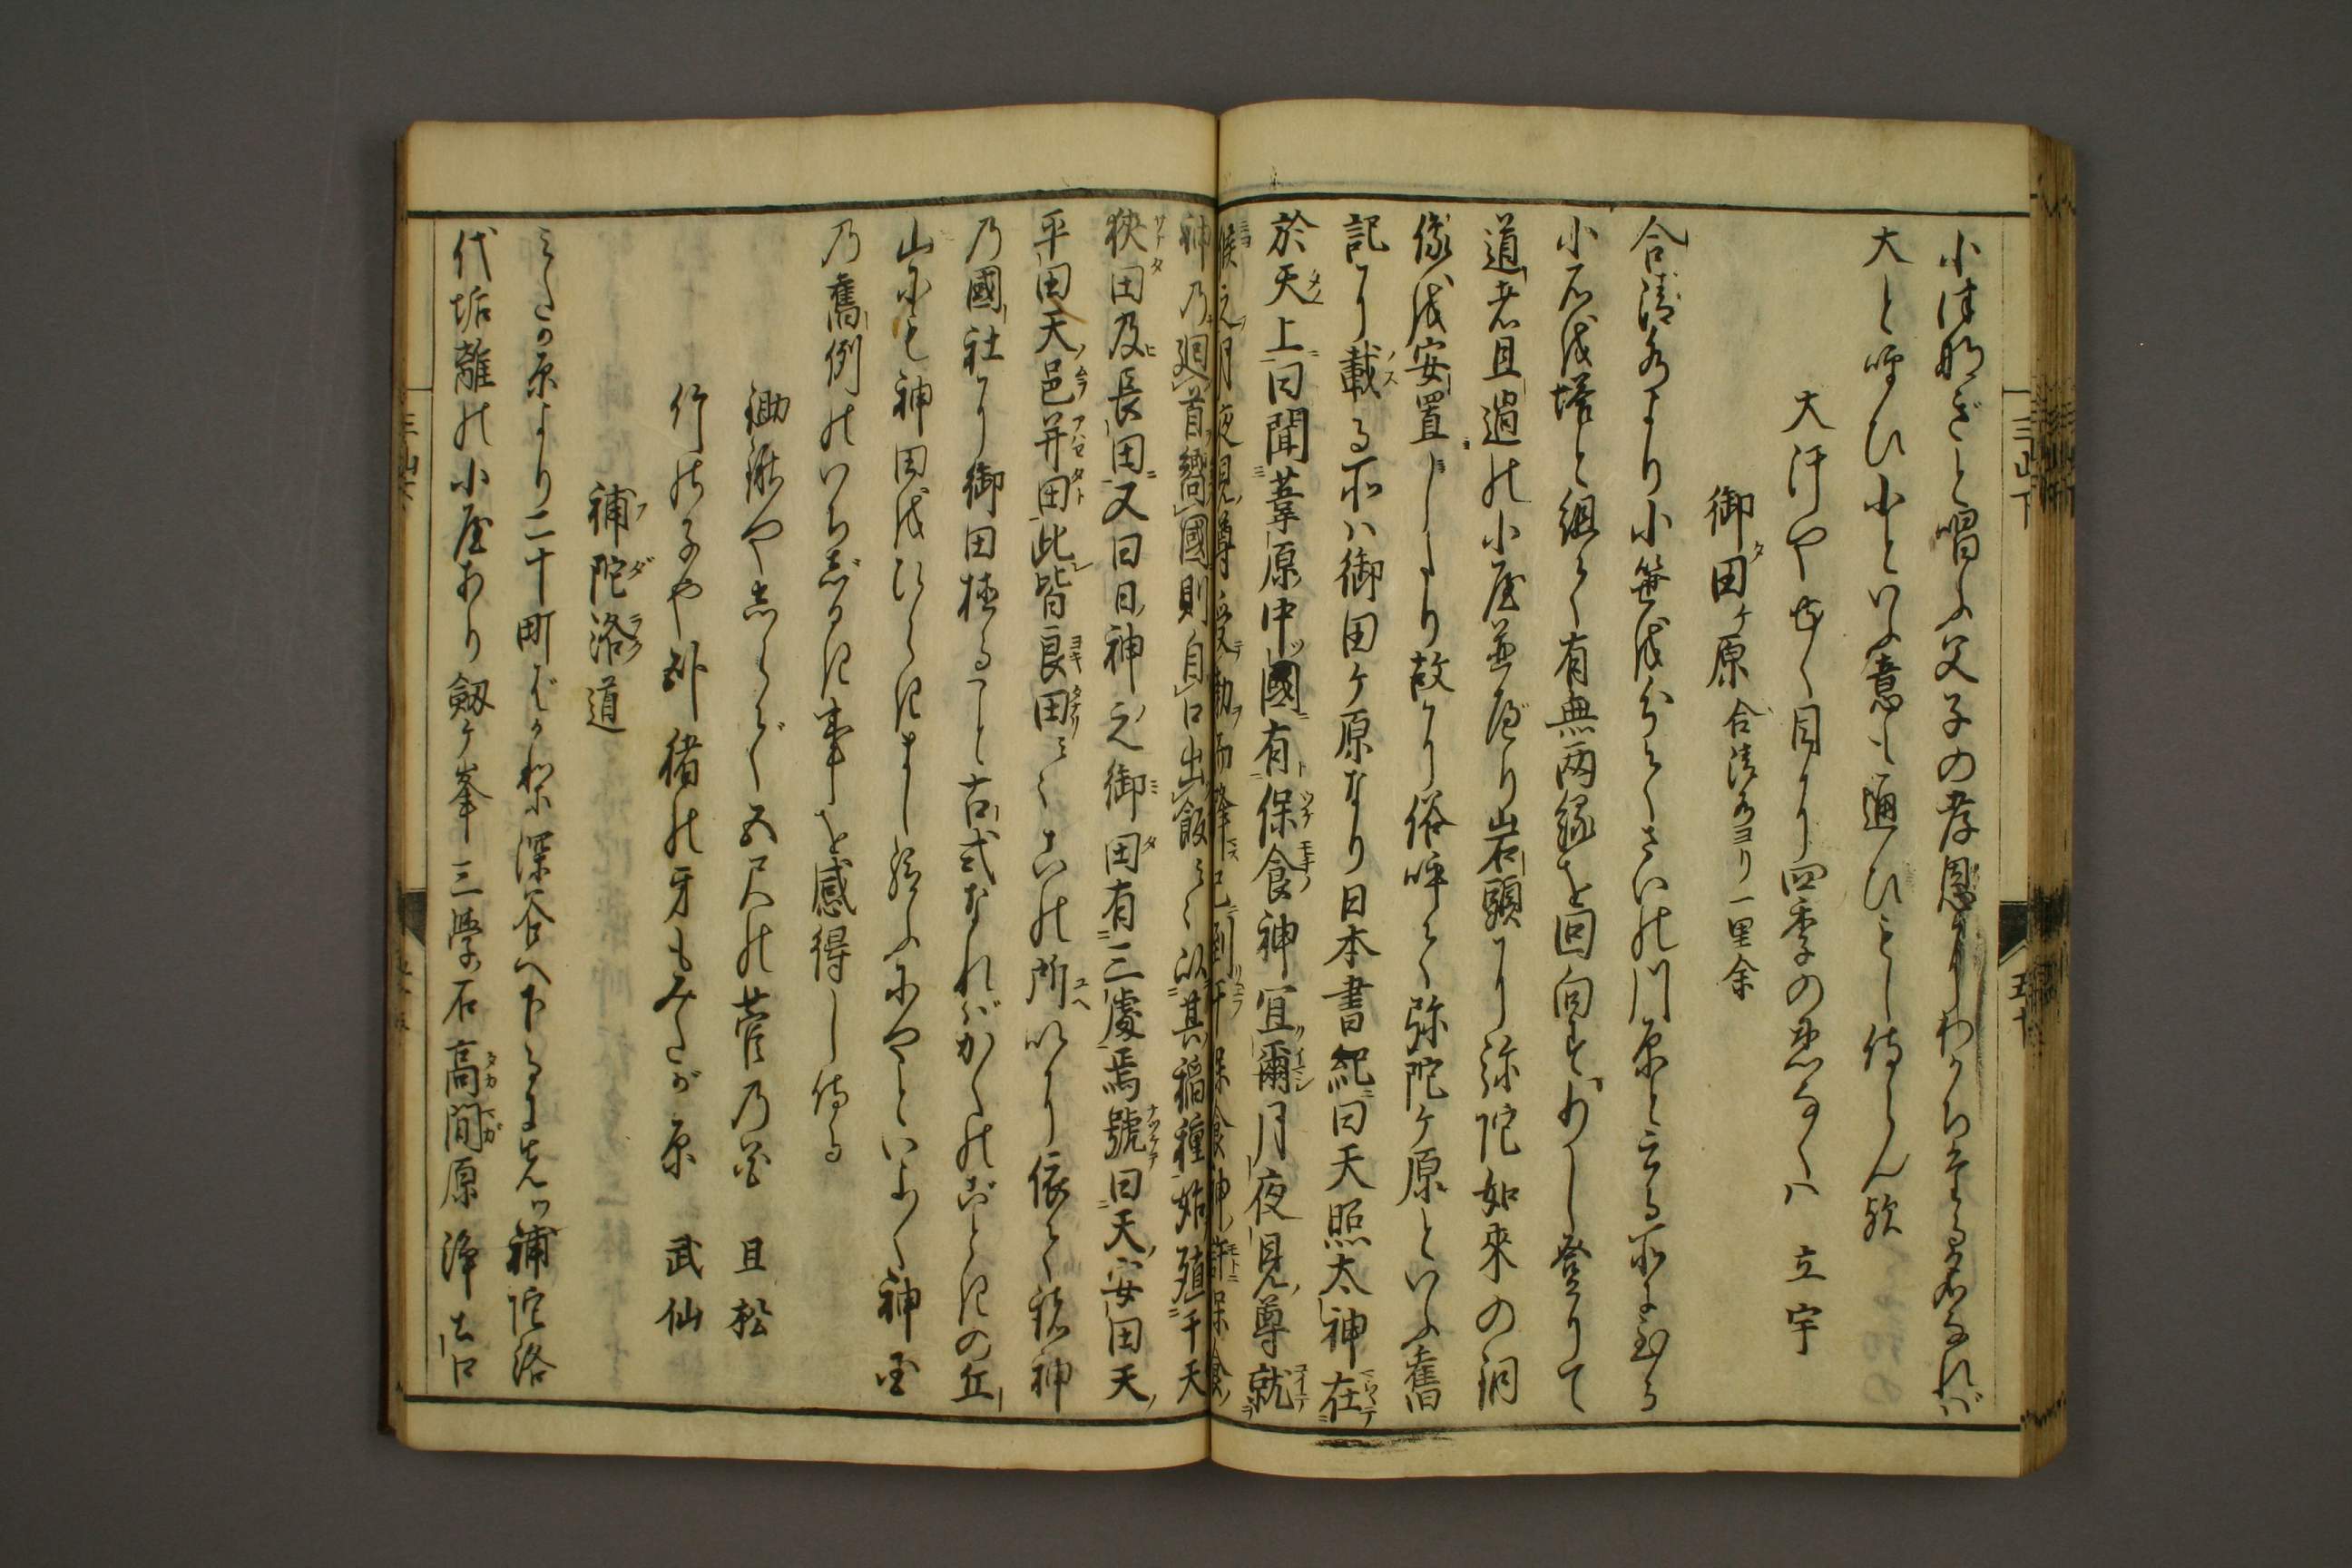 小津那ぎと唱ふ父子の孝恩よりわかちたる名なれば
大と呼ひ小といふ意も通ひもし侍らん歟
大汗や せく目より四季の 立宇
御田ヶ原 合清水ヨリ一里余
合清水より小笹を分てさいの川原と云る所に至る
小石を塔と組て有無両縁を回向す 少し登りて
道者且過の小屋並べり岩頭に弥陀如来の銅
像を安置したり故に俗呼て弥陀ヶ原といふ舊
記に載る所ハ御田ヶ原なり日本書紀曰天照太神在
於天上曰聞葦原中國有保食神宜爾月夜見尊就
候之月夜見尊受勅而降已到于保食神許保食
神乃廻首嚮國則自口出飯云云以其稲種始殖于天
狭田及長田又曰日神之御田有三處焉號曰天安田天
平田天邑并田此皆良田云云この所以に依て諸神
乃國社に御田植ること古式なれバかくのごときの丘
山にも神田をひらきまし給ふにやといよく神墨
乃舊例のいちじるき事を感得し侍る
鋤鍬や 五尺の菅乃笠 且松
竹の子や 猪の牙もみだが原 武仙
補陀洛道
みだの原より二十町ばかり深谷へ下るにまつ補陀洛
代垢離の小屋あり劔ヶ峯 三學石 高間原 浄土口
三山下
五十